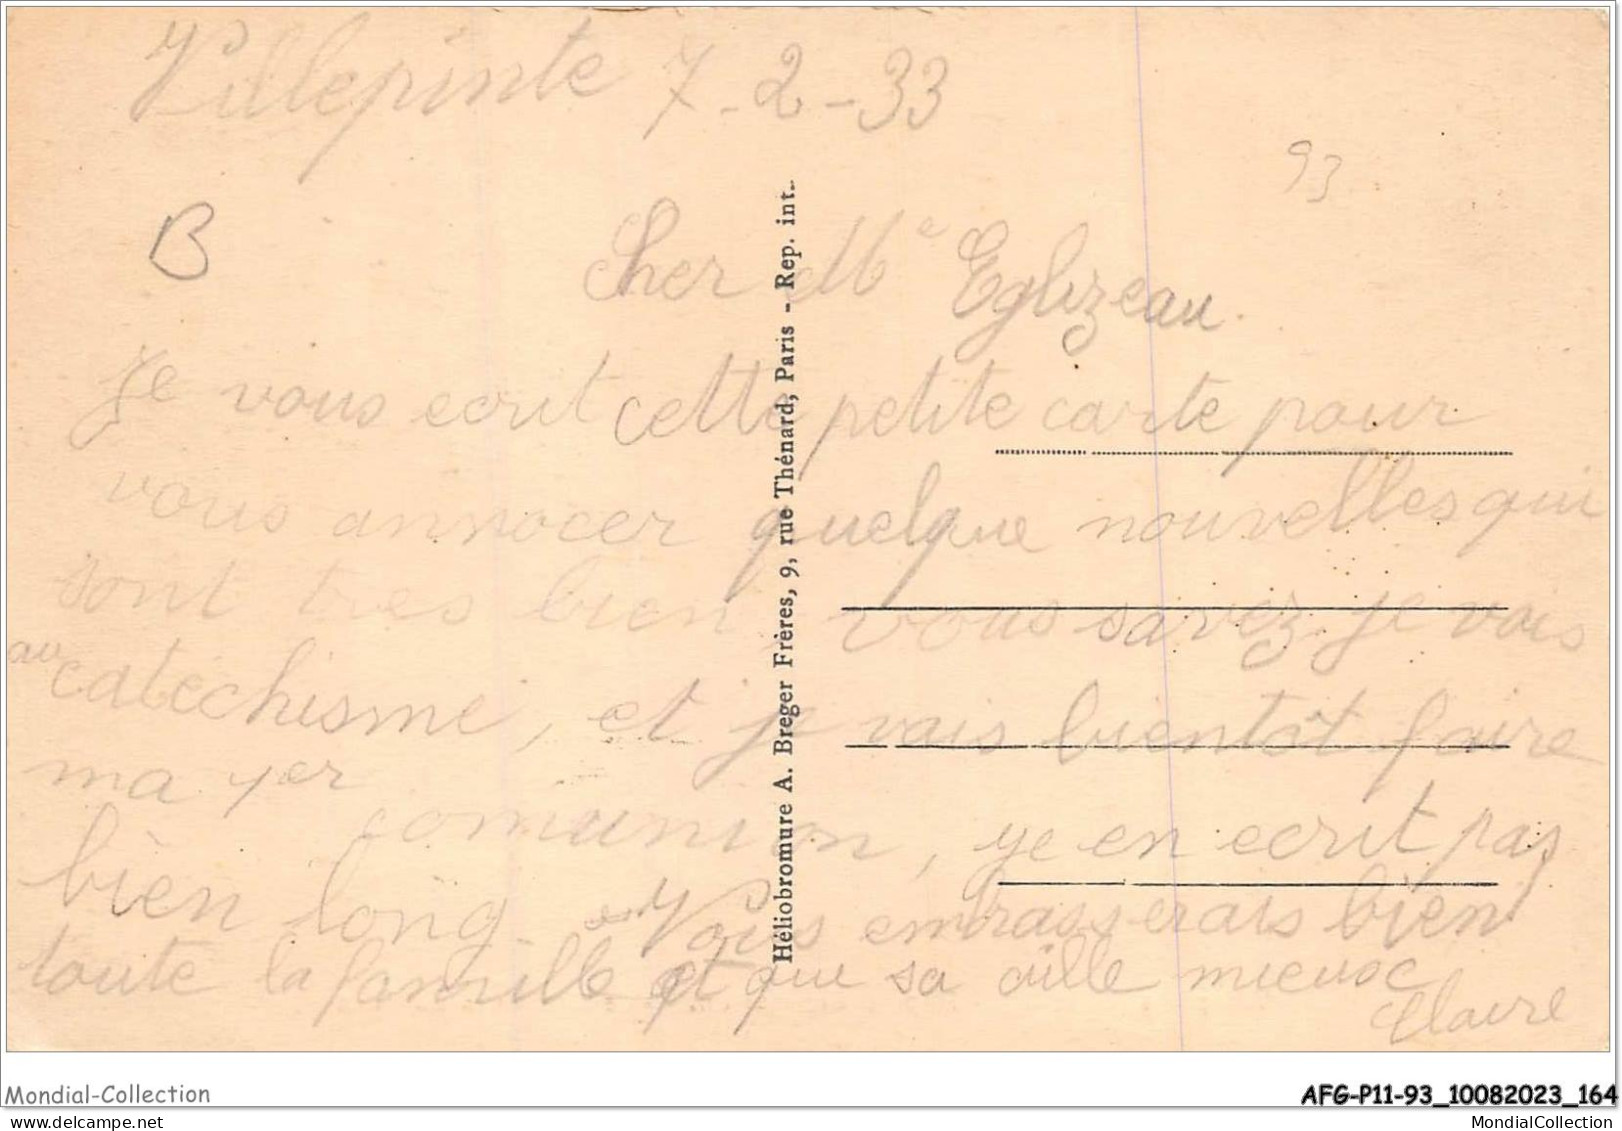 Villepinte 7-2-33
93
B
Cher Me Eglizeau.
Je vous ecrit cette petite carte pour
vous annocer quelque nouvelles qui
sont tres bien vous savez je vais
au catéchisme, et je vais bientôt faire
ma 1er comunion, je en ecrit pas
bien long Vous embrasserais bien
toute la famille et que sa aille mieux
Claire
Héliobromure A. Breger Frères, 9, rue Thénard, Paris - Rep. int.
Mondial-Collection
AFG-P11-93_10082023_164
MondialCollection
MondialCollection